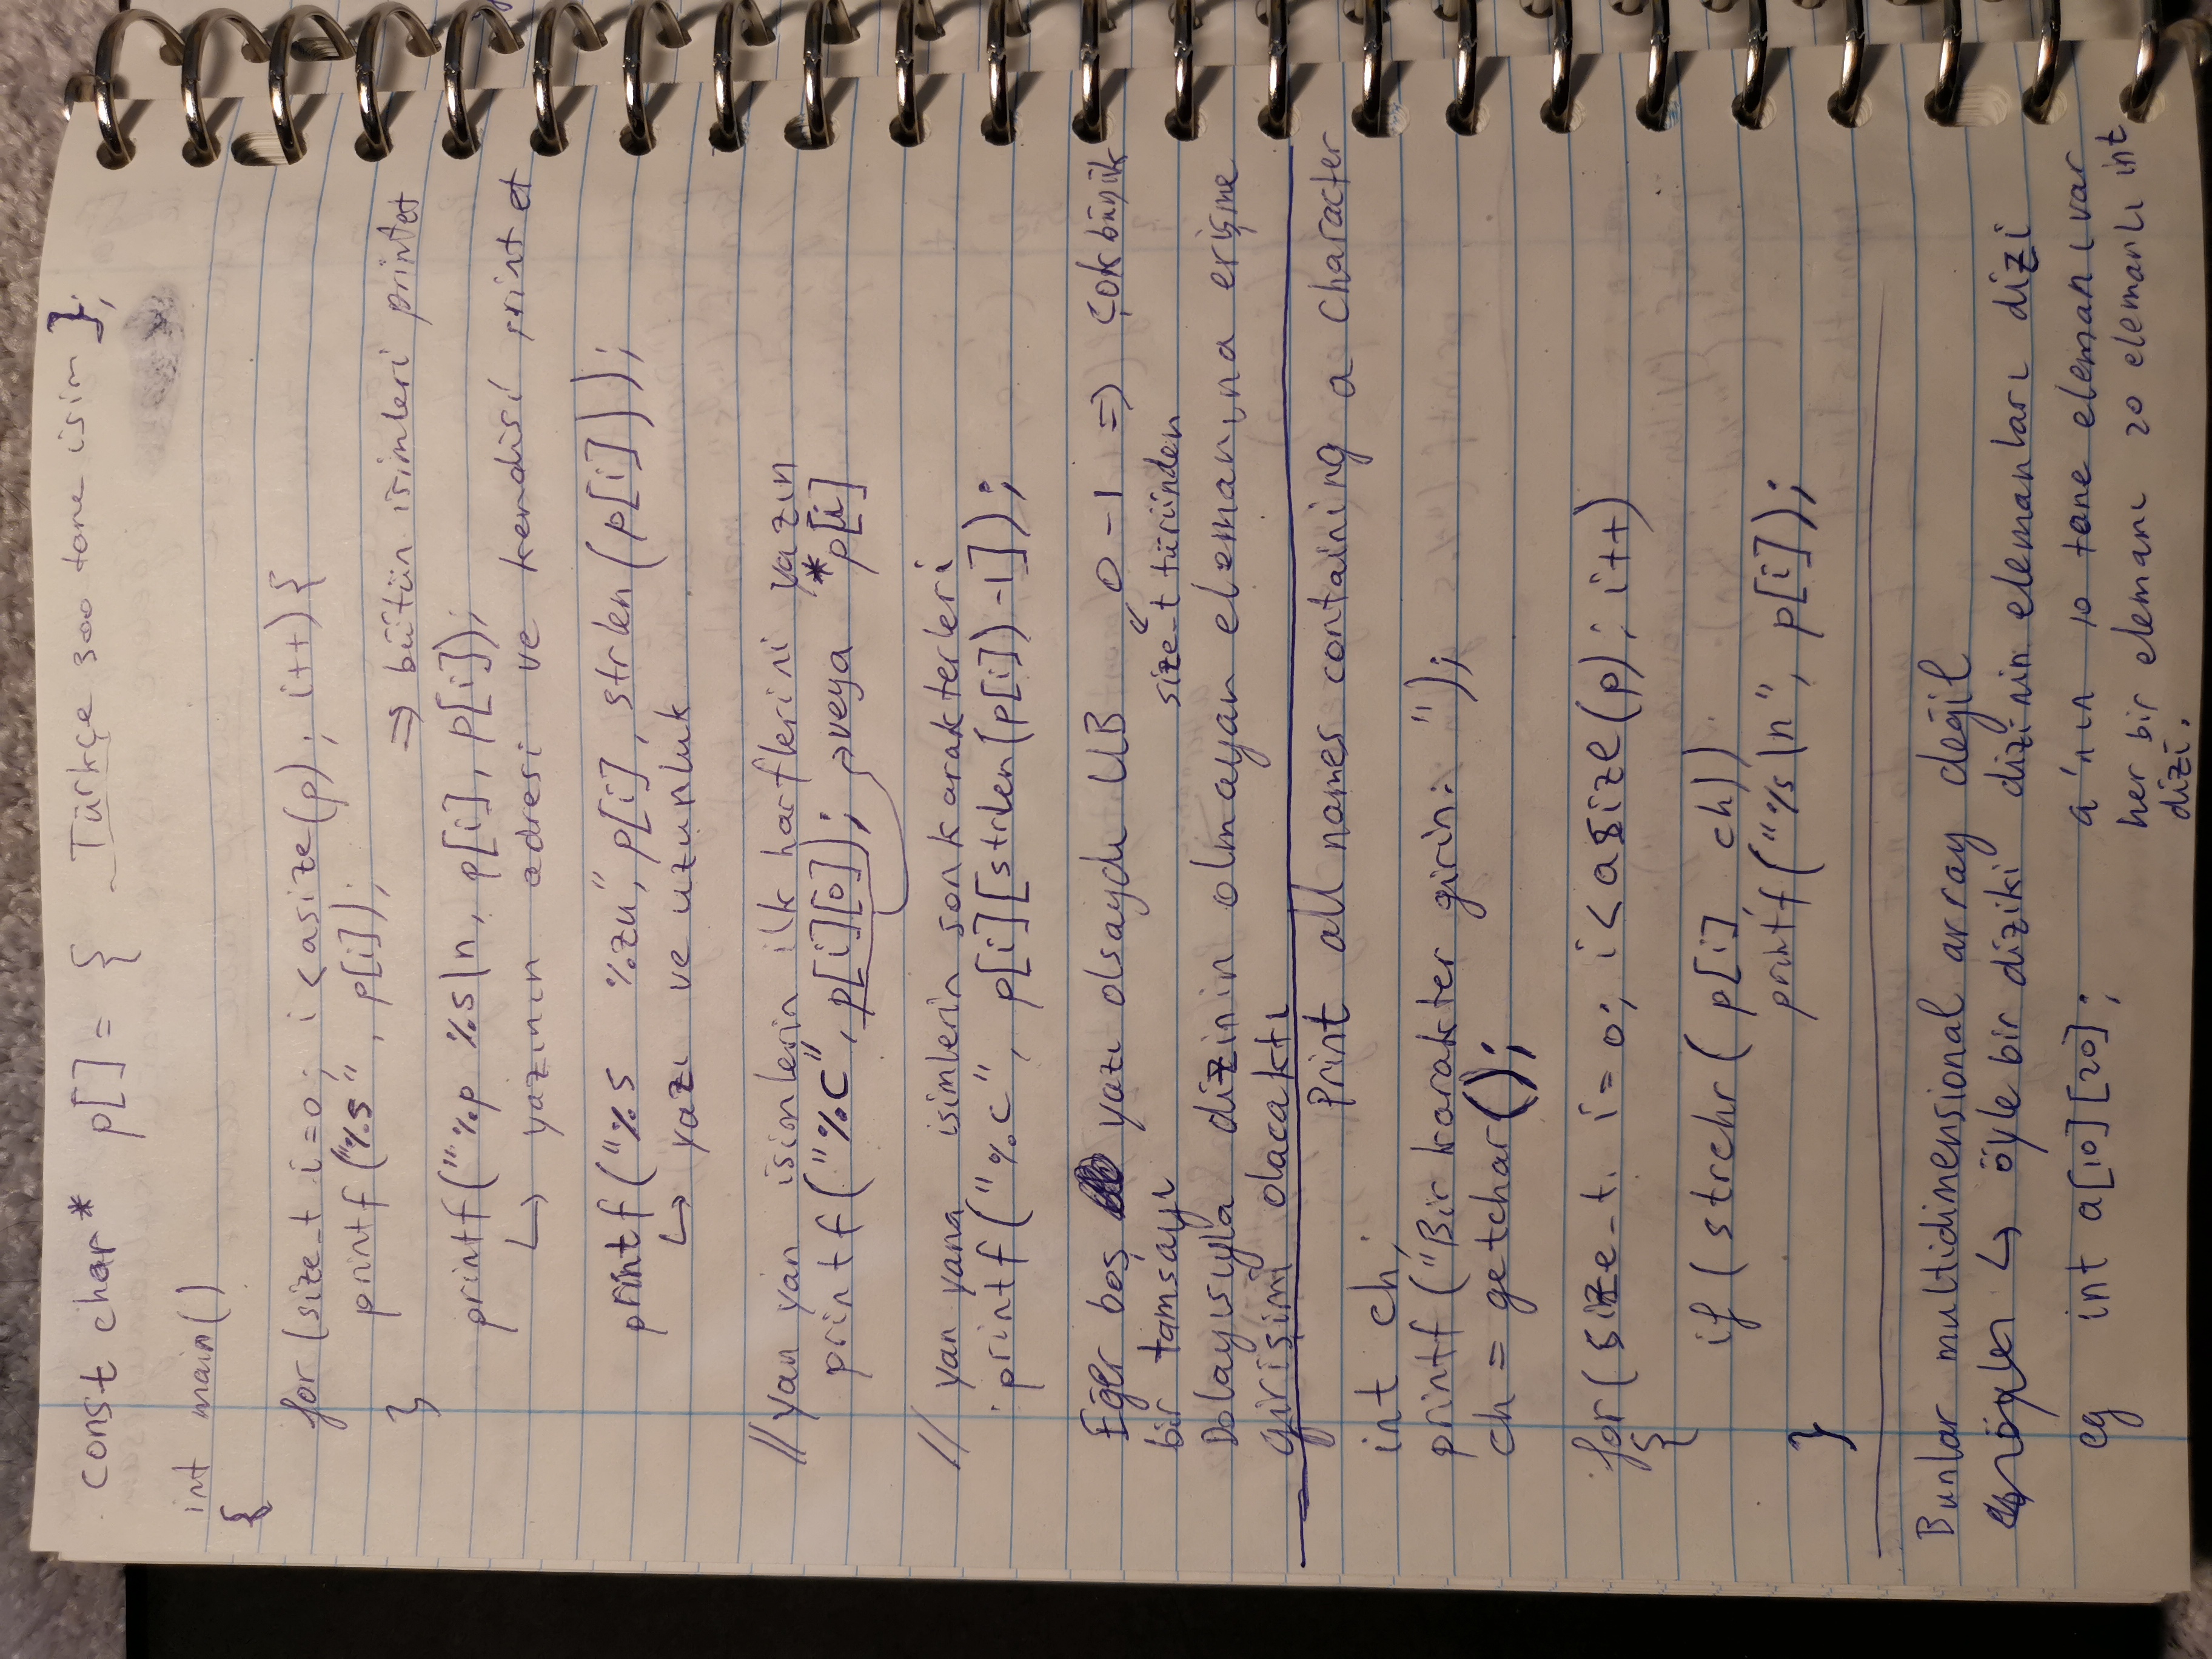 const char* p[] = { Türkçe 300 tane isim };
int main()
{
for (size_t i=0; i<asize(p); i++){
printf("%s", p[i]);
} => bütün isimleri printet
printf("%p %s\n, p[i], p[i]);
↳ yazının adresi ve kendisi print et
printf("%s %zu", p[i], strlen(p[i]));
↳ yazı ve uzunluk
// yan yan isimlerin ilk harflerini yazın
printf("%c", p[i][0]); → veya *p[i]
// yan yana isimlerin son karakterleri
printf("%c", p[i][strlen(p[i])-1]);
Eğer boş yazı olsaydı UB 0-1 => çok büyük
bir tamsayı size_t türünden
Dolayısıyla dizinin olmayan elemanına erişme
girişimi olacaktı
Print all names containing a character
int ch;
printf("Bir karakter girin: ");
ch = getchar();
for(size_t i=0; i<asize(p); i++)
{
if (strchr(p[i], ch))
printf("%s\n", p[i]);
}
Bunlar multidimensional array değil
↳ öyle bir diziki dizinin elemanları dizi
eg int a[10][20]; a'nın 10 tane elemanı var
her bir elemanı 20 elemanlı int
dizi.